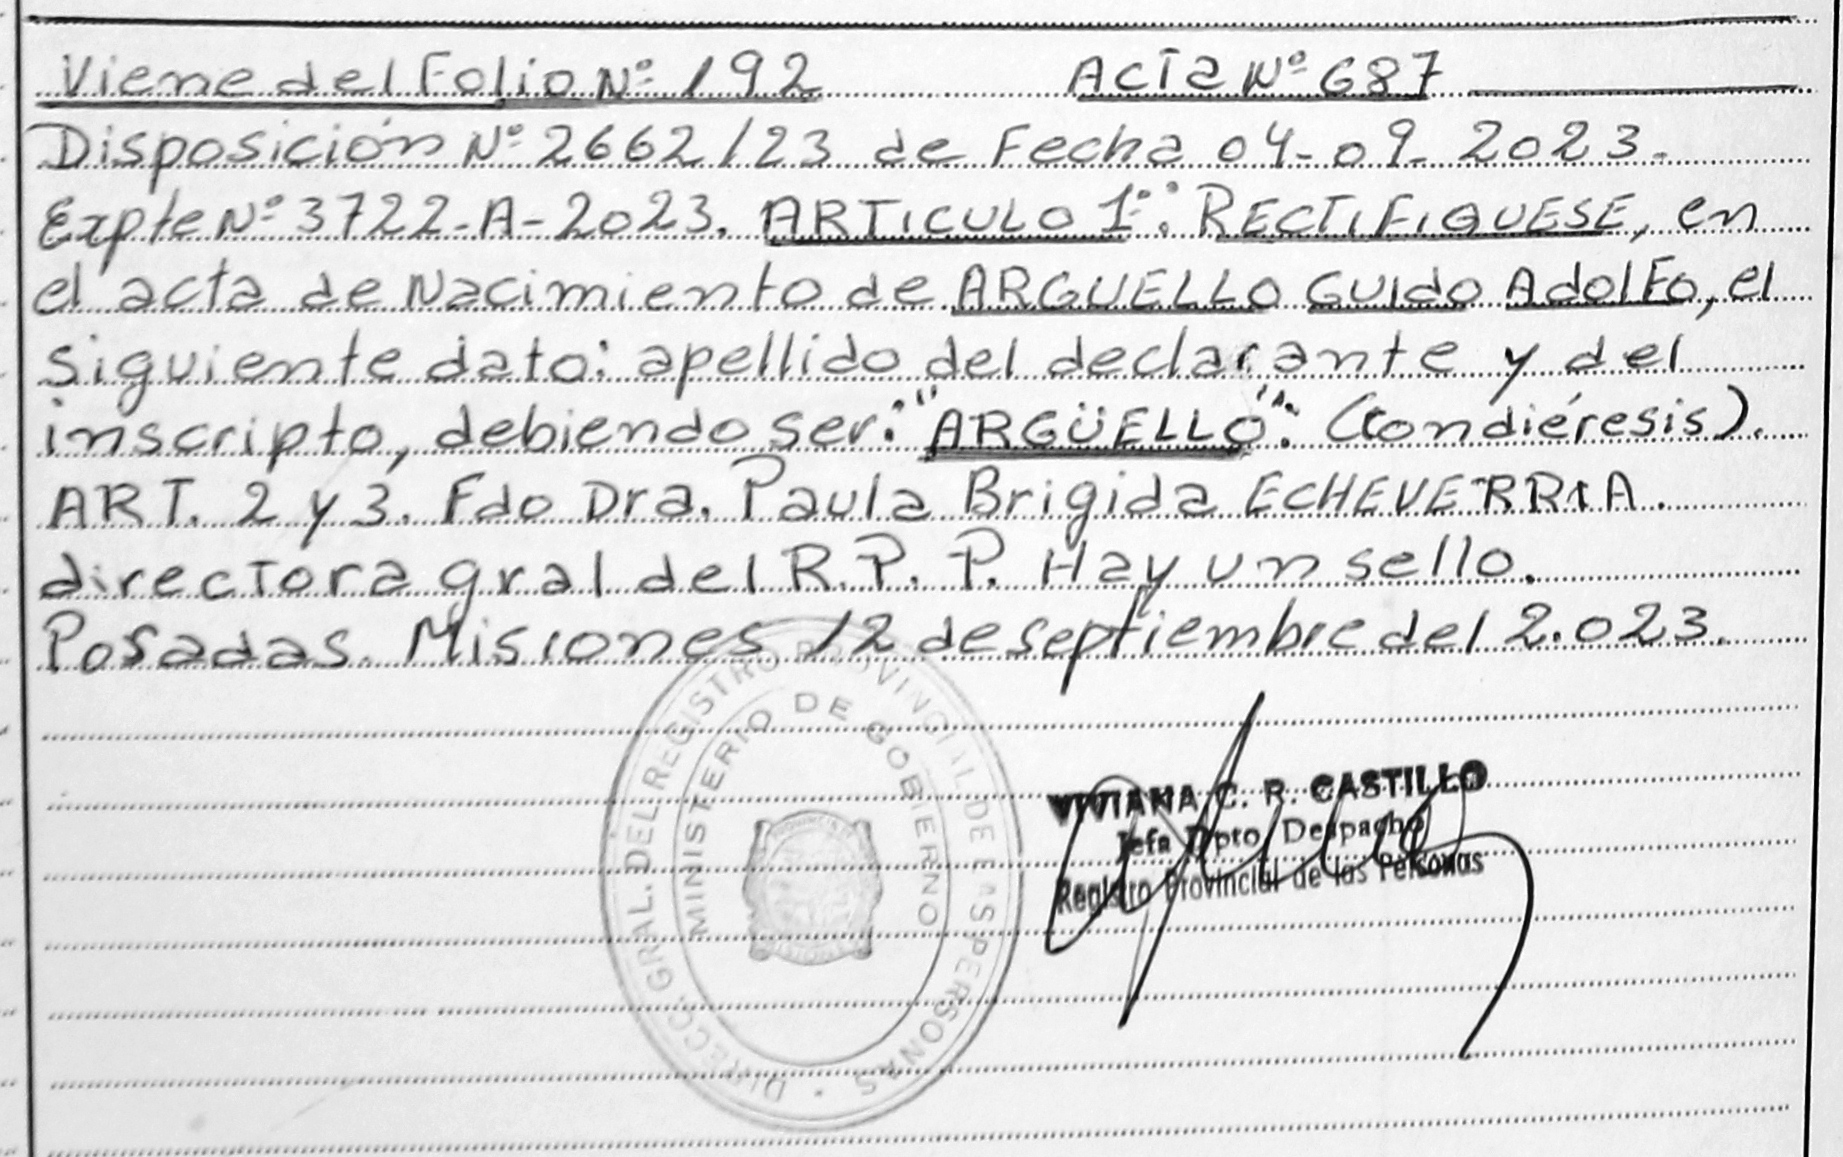 Viene del Folio Nº 192 Acta Nº 687
Disposición Nº 2662/23 de Fecha 04-09-2023.
Expte Nº 3722-A-2023. ARTICULO 1º: RECTIFIQUESE, en
el acta de Nacimiento de ARGUELLO GUIdo AdolFo, el
siguiente dato: apellido del declarante y del
inscripto, debiendo ser: "ARGÜELLO": (con diéresis).
ART. 2 y 3. Fdo Dra. Paula Brigida ECHEVERRIA.
directora gral del R.P.P. Hay un sello.
Posadas. Misiones 12 de septiembre del 2.023.
DIRECC. GRAL. DEL REGISTRO PROVINCIAL DE LAS PERSONAS
MINISTERIO DE GOBIERNO
VIVIANA C. R. CASTILLO
Jefa Dpto Despacho
Registro Provincial de las Personas